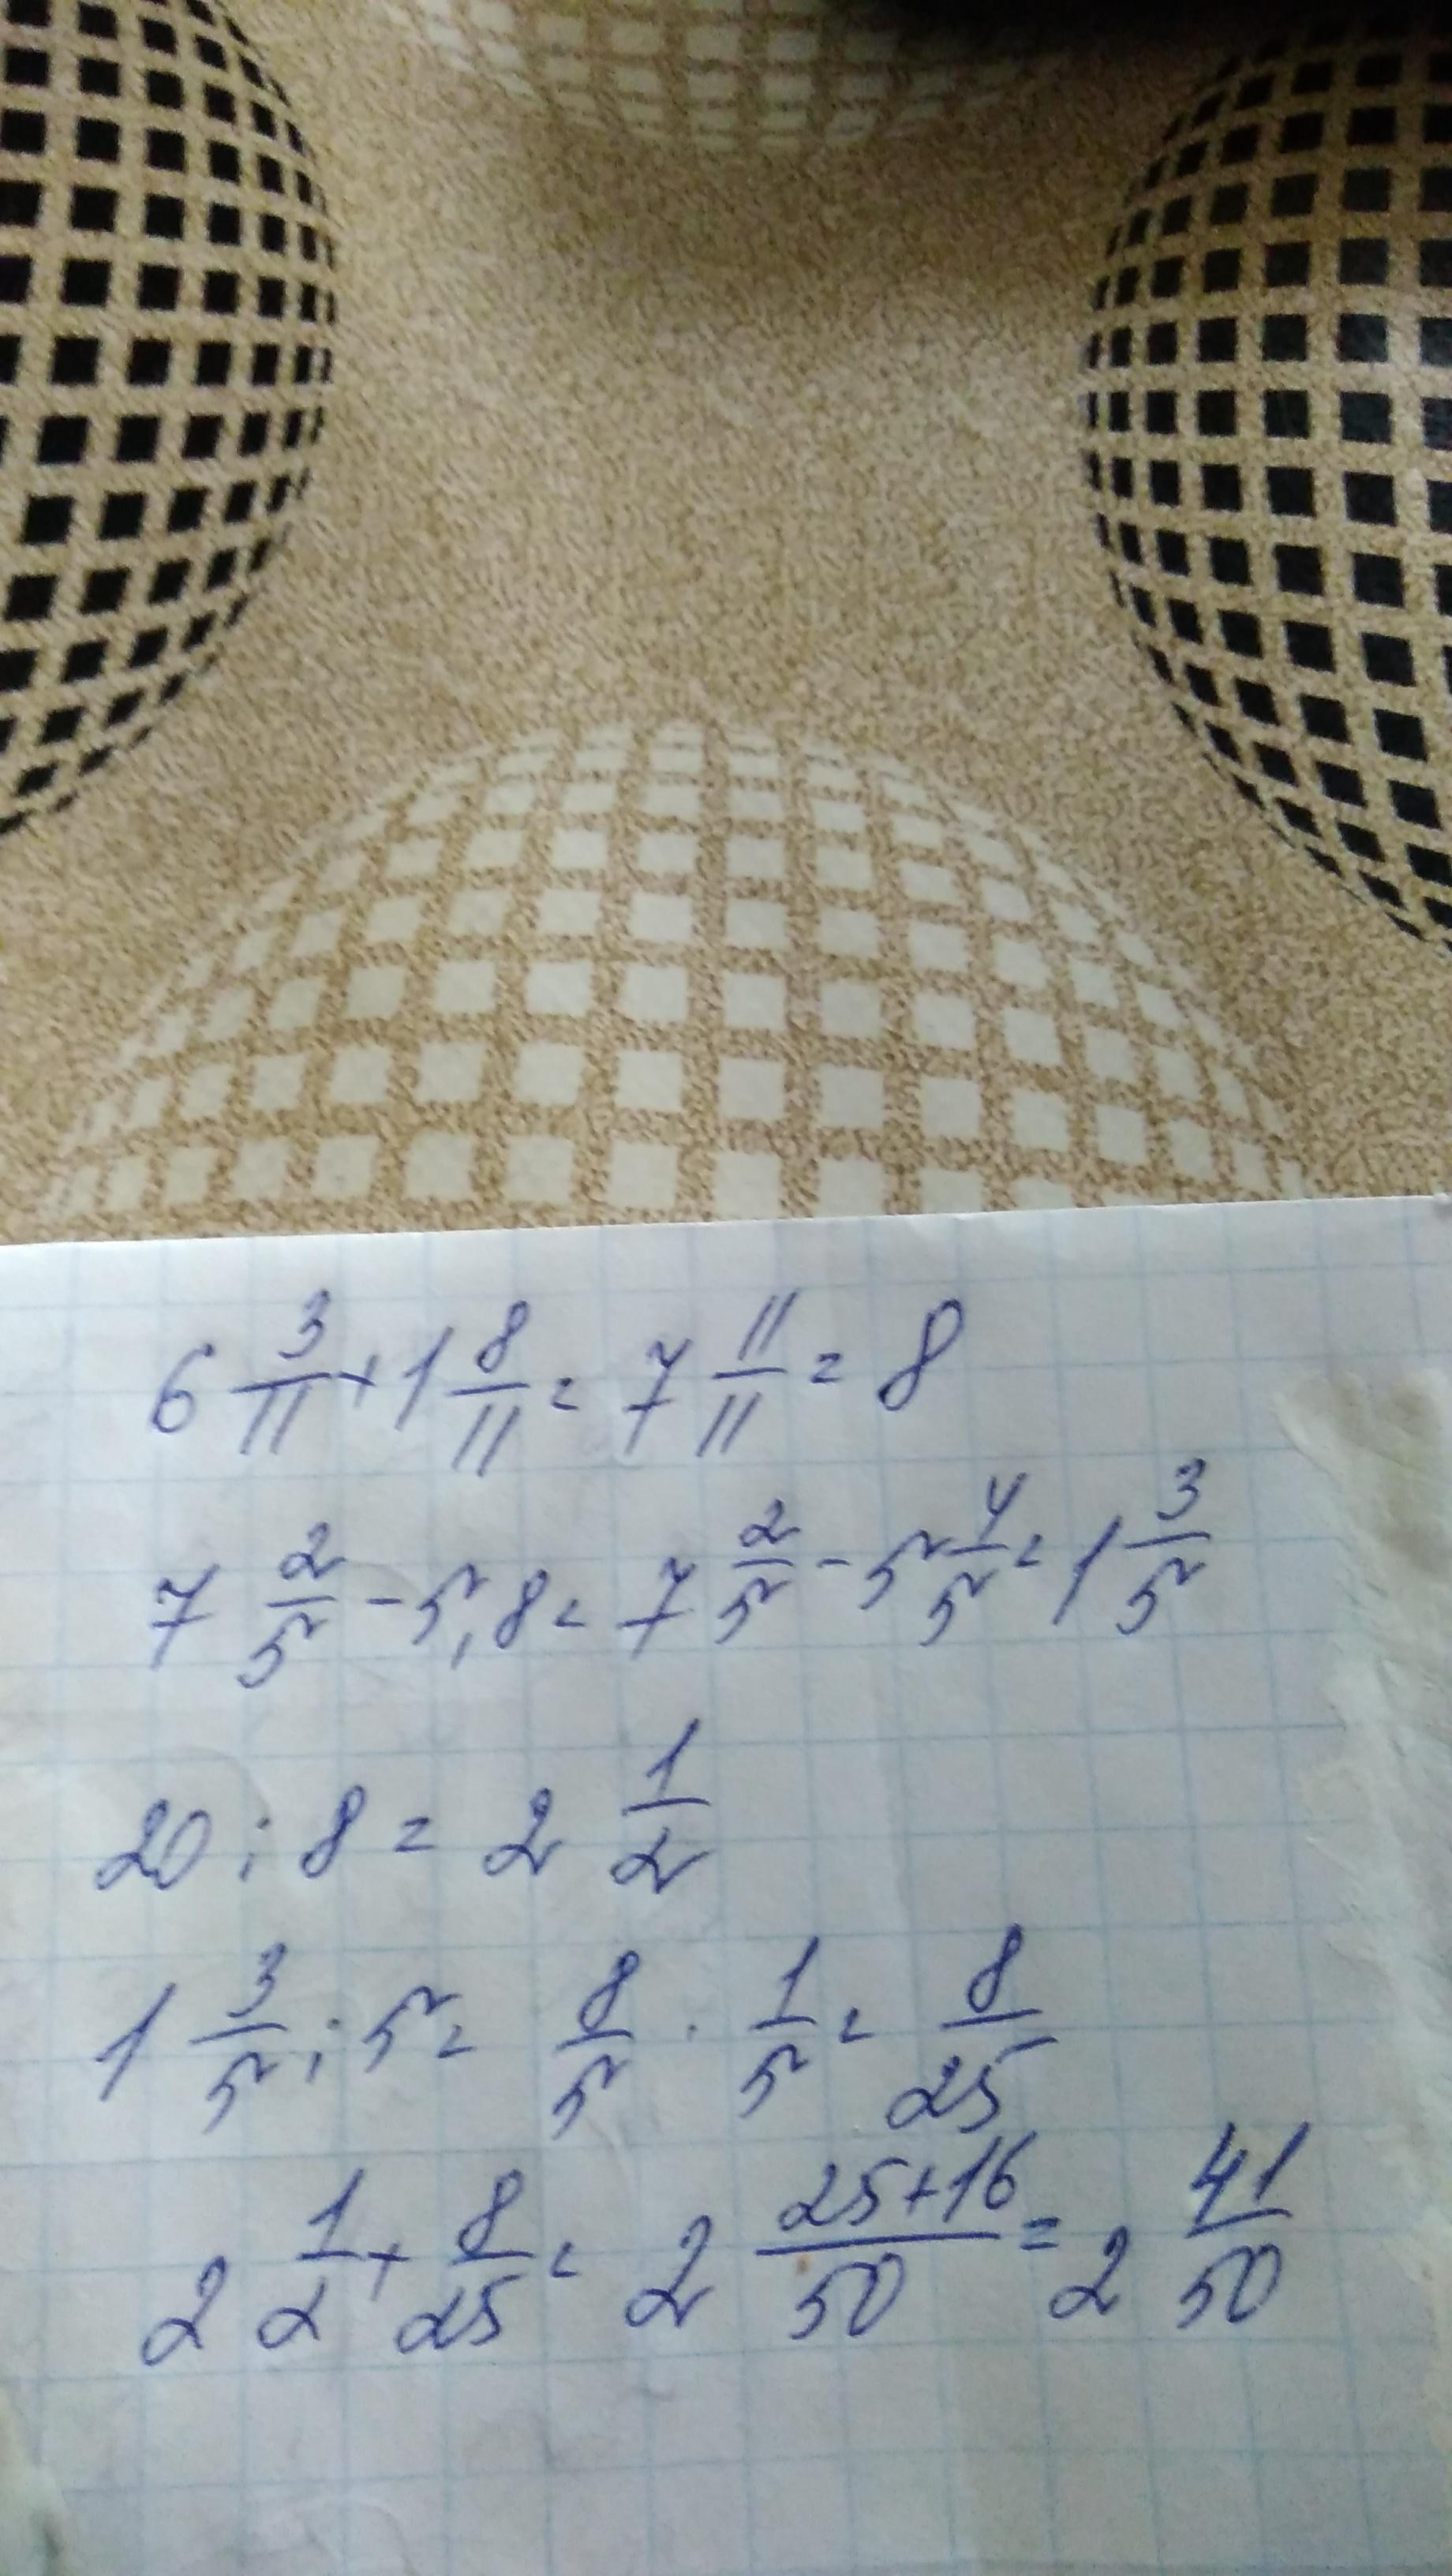 6 3/11 + 1 8/11 = 7 11/11 = 8
7 2/5 - 5,8 = 7 2/5 - 5 4/5 = 1 3/5
20 : 8 = 2 1/2
1 3/5 : 5 = 8/5 · 1/5 = 8/25
2 1/2 + 8/25 = 2 25+16/50 = 2 41/50